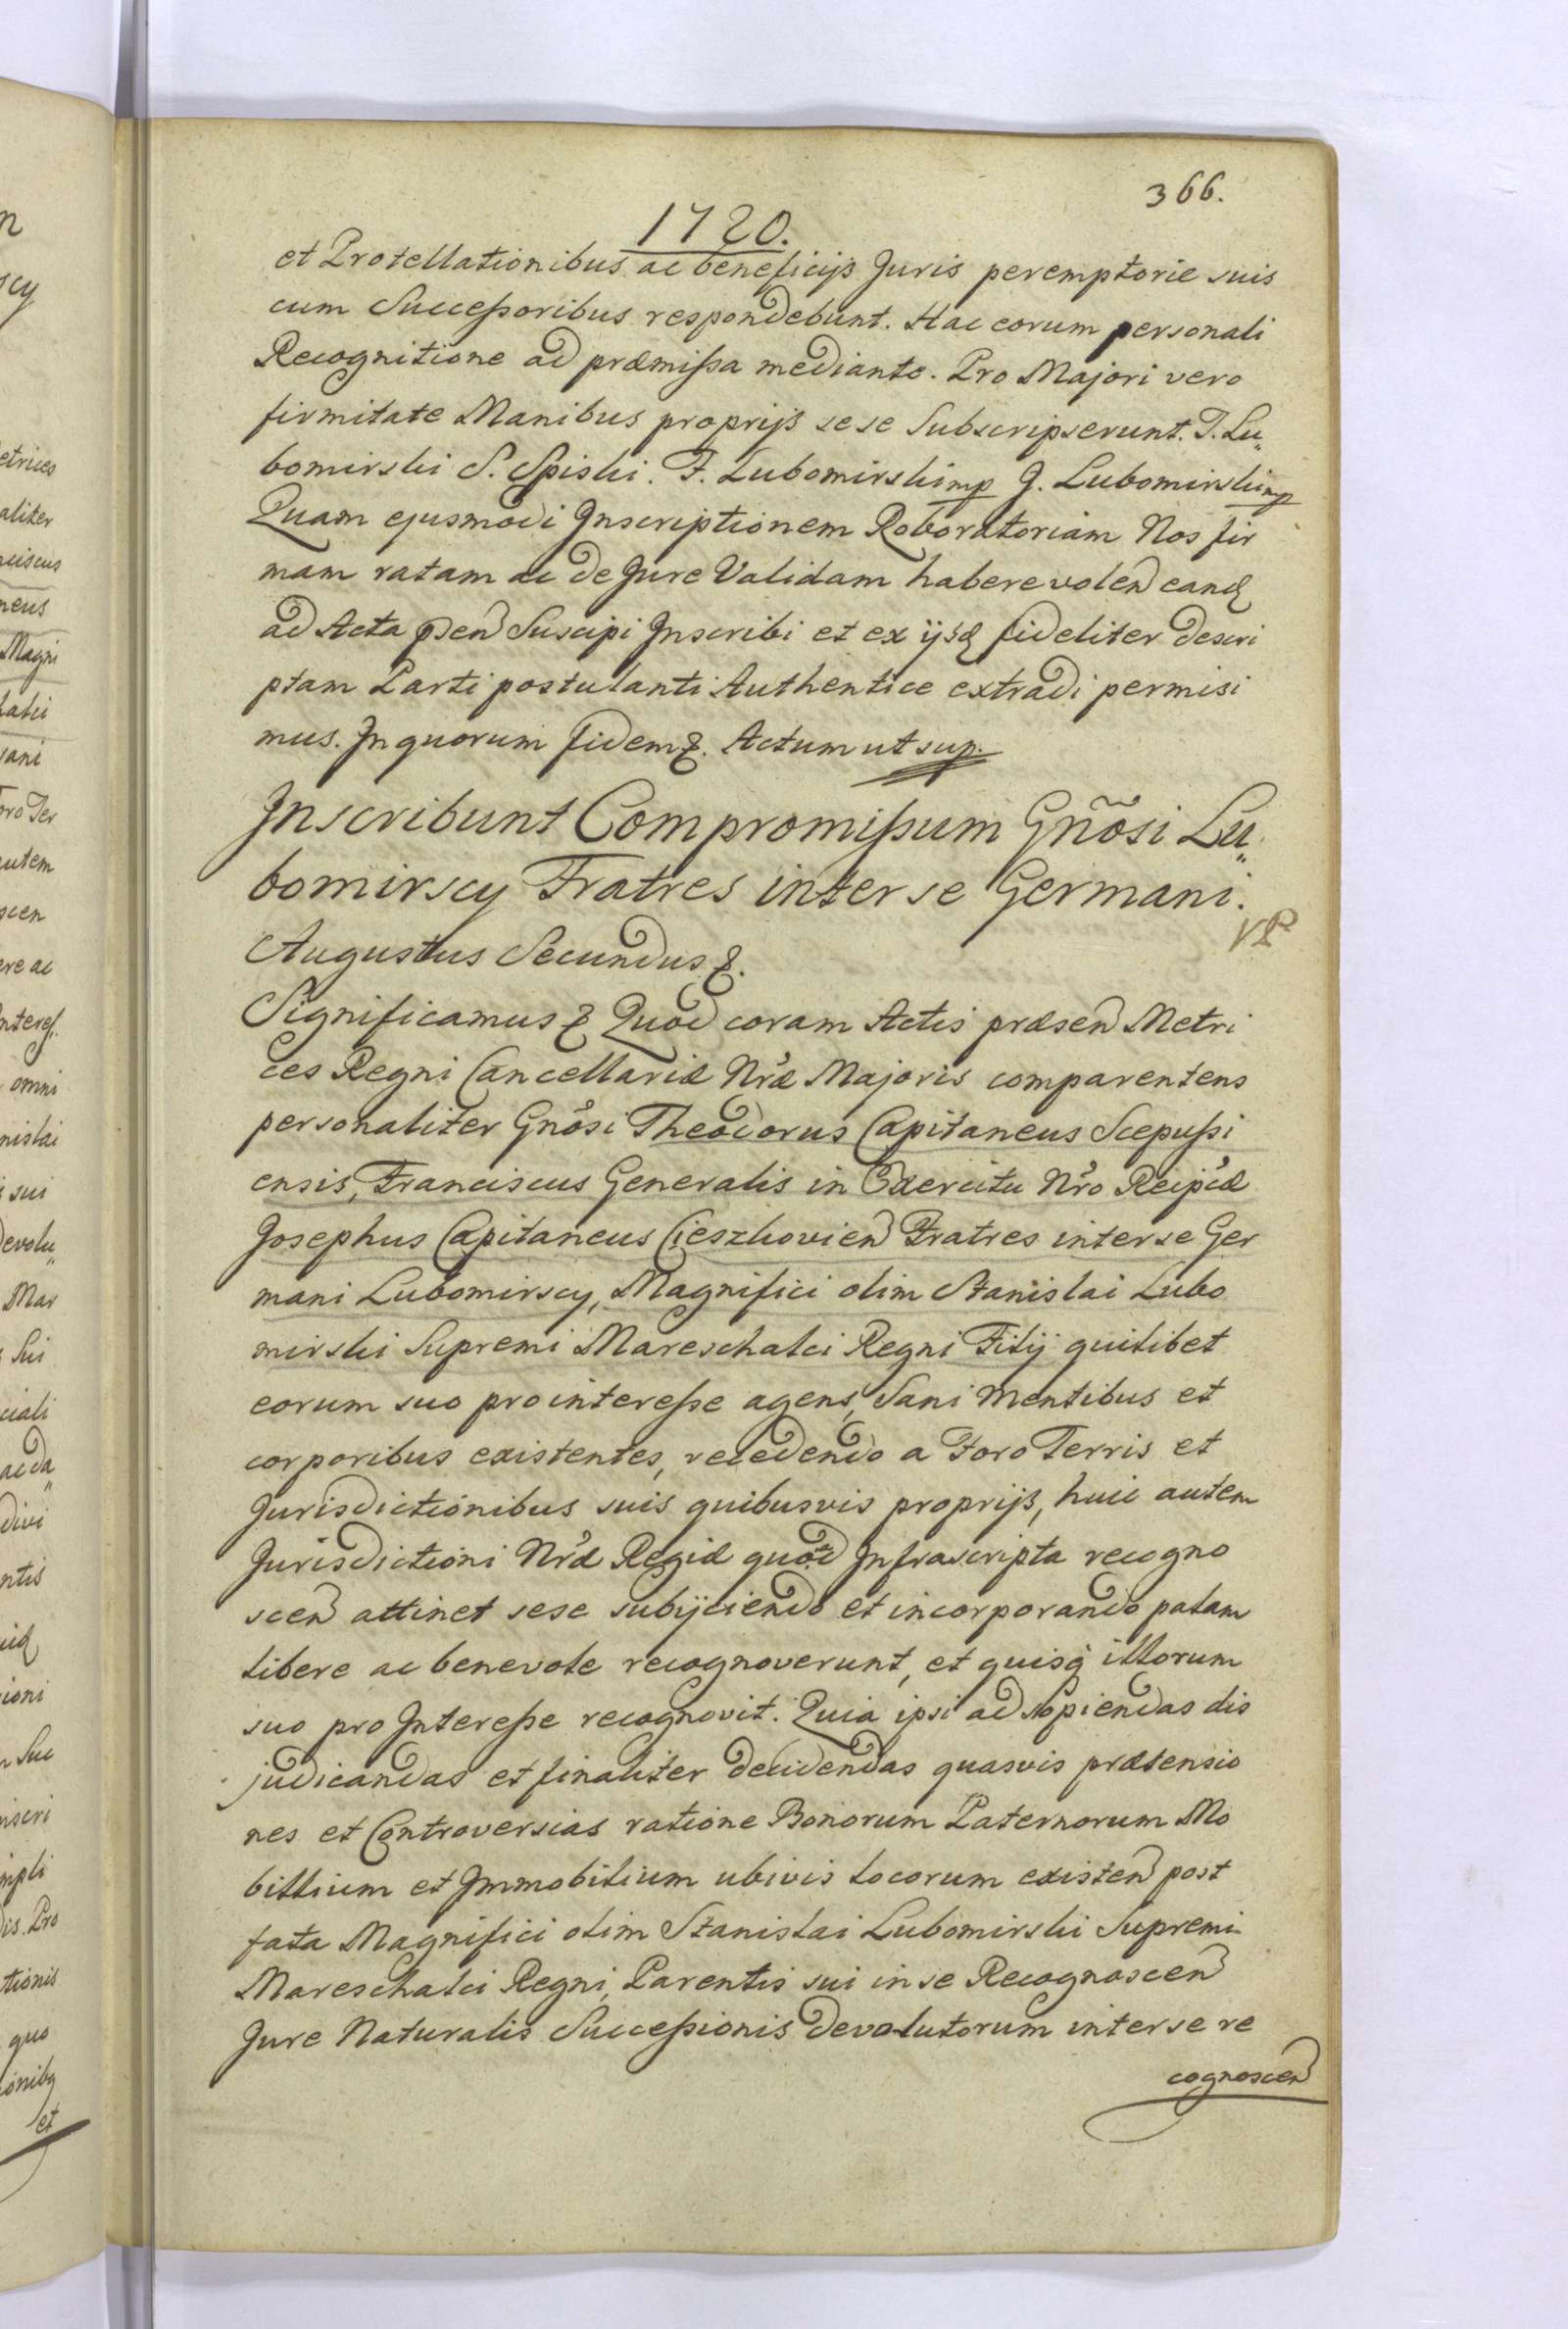 366.
1720.
et Protellationibus ac beneficijs Juris peremptorie suis
cum Successoribus respondebunt. Hac eorum personali
Recognitione ad præmissa mediante. Pro Majori vero
firmitate Manibus proprijs sese Subscripserunt. T. Lu„
bomirski S. Spiski. F. Lubomirski mp J. Lubomirski mp
Quam ejusmodi Inscriptionem Roboratoriam Nos fir
mam ratam ac de Jure Validam habere volen eanq
ad Acta pñen Suscipi Inscribi et ex ijsq fideliter descri
ptam Parti postulanti Authentice extradi permisi
mus. In quorum fidem &. Actum ut sup.
Inscribunt Compromissum Gñosi Lu„
bomirscy Fratres inter se Germani.
VP
Augustus Secundus &.
Significamus & Quod coram Actis præsen Metri
ces Regni Cancellariæ Nræ Majoris comparentens
personaliter Gnosi Theodorus Capitaneus Scepussi
ensis, Franciscus Generalis in Exercitu Nro Reipcæ
Josephus Capitaneus Cieszkovien Fratres inter se Ger
mani Lubomirscy, Magnifici olim Stanislai Lubo
mirski Supremi Mareschalci Regni Filij quilibet
eorum suo pro interesse agens, Sani Mentibus et
corporibus existentes, recedendo a Foro Terris et
Jurisdictionibus suis quibusvis proprijs, huic autem
Jurisdictioni Nræ Regiæ quod Infrascripta recogno
scen attinet sese subijciendo et incorporando palam
libere ac benevole recognoverunt, et quisq illorum
suo pro Interesse recognovit. Quia ipsi ad sopiendas dis
judicandas et finaliter decidendas quasvis prætensio
nes et Controversias ratione Bonorum Paternorum Mo
bilium et Immobilium ubivis locorum existen post
fata Magnifici olim Stanislai Lubomirski Supremi
Mareschalci Regni, Parentis sui in se Recognoscen
Jure Naturalis Successionis devolutorum inter se re
cognoscen